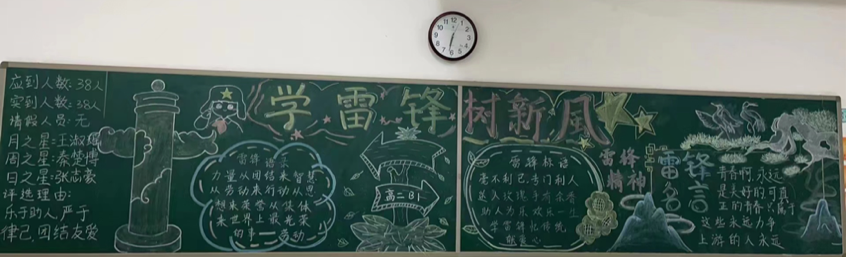 应到人数:38人
实到人数:38人
情假人员:无
月之星:王淑
周之星:秦楚博
日之星:张志豪
评选理由:
乐于助人,严于
律己,团结友爱
学雷锋树新风
雷锋语录
力量从团结来 智慧
从劳动来 行动从思
想来 荣誉从集体
来 世界上最光荣
的事—劳动
高二8
雷锋标语
毫不利己,专门利人
助人为乐欢乐一生
雷锋
精神
雷锋
名言
青春啊,永远
是美好的可真
正的青春只属于
这些永远力争
上游的人永远